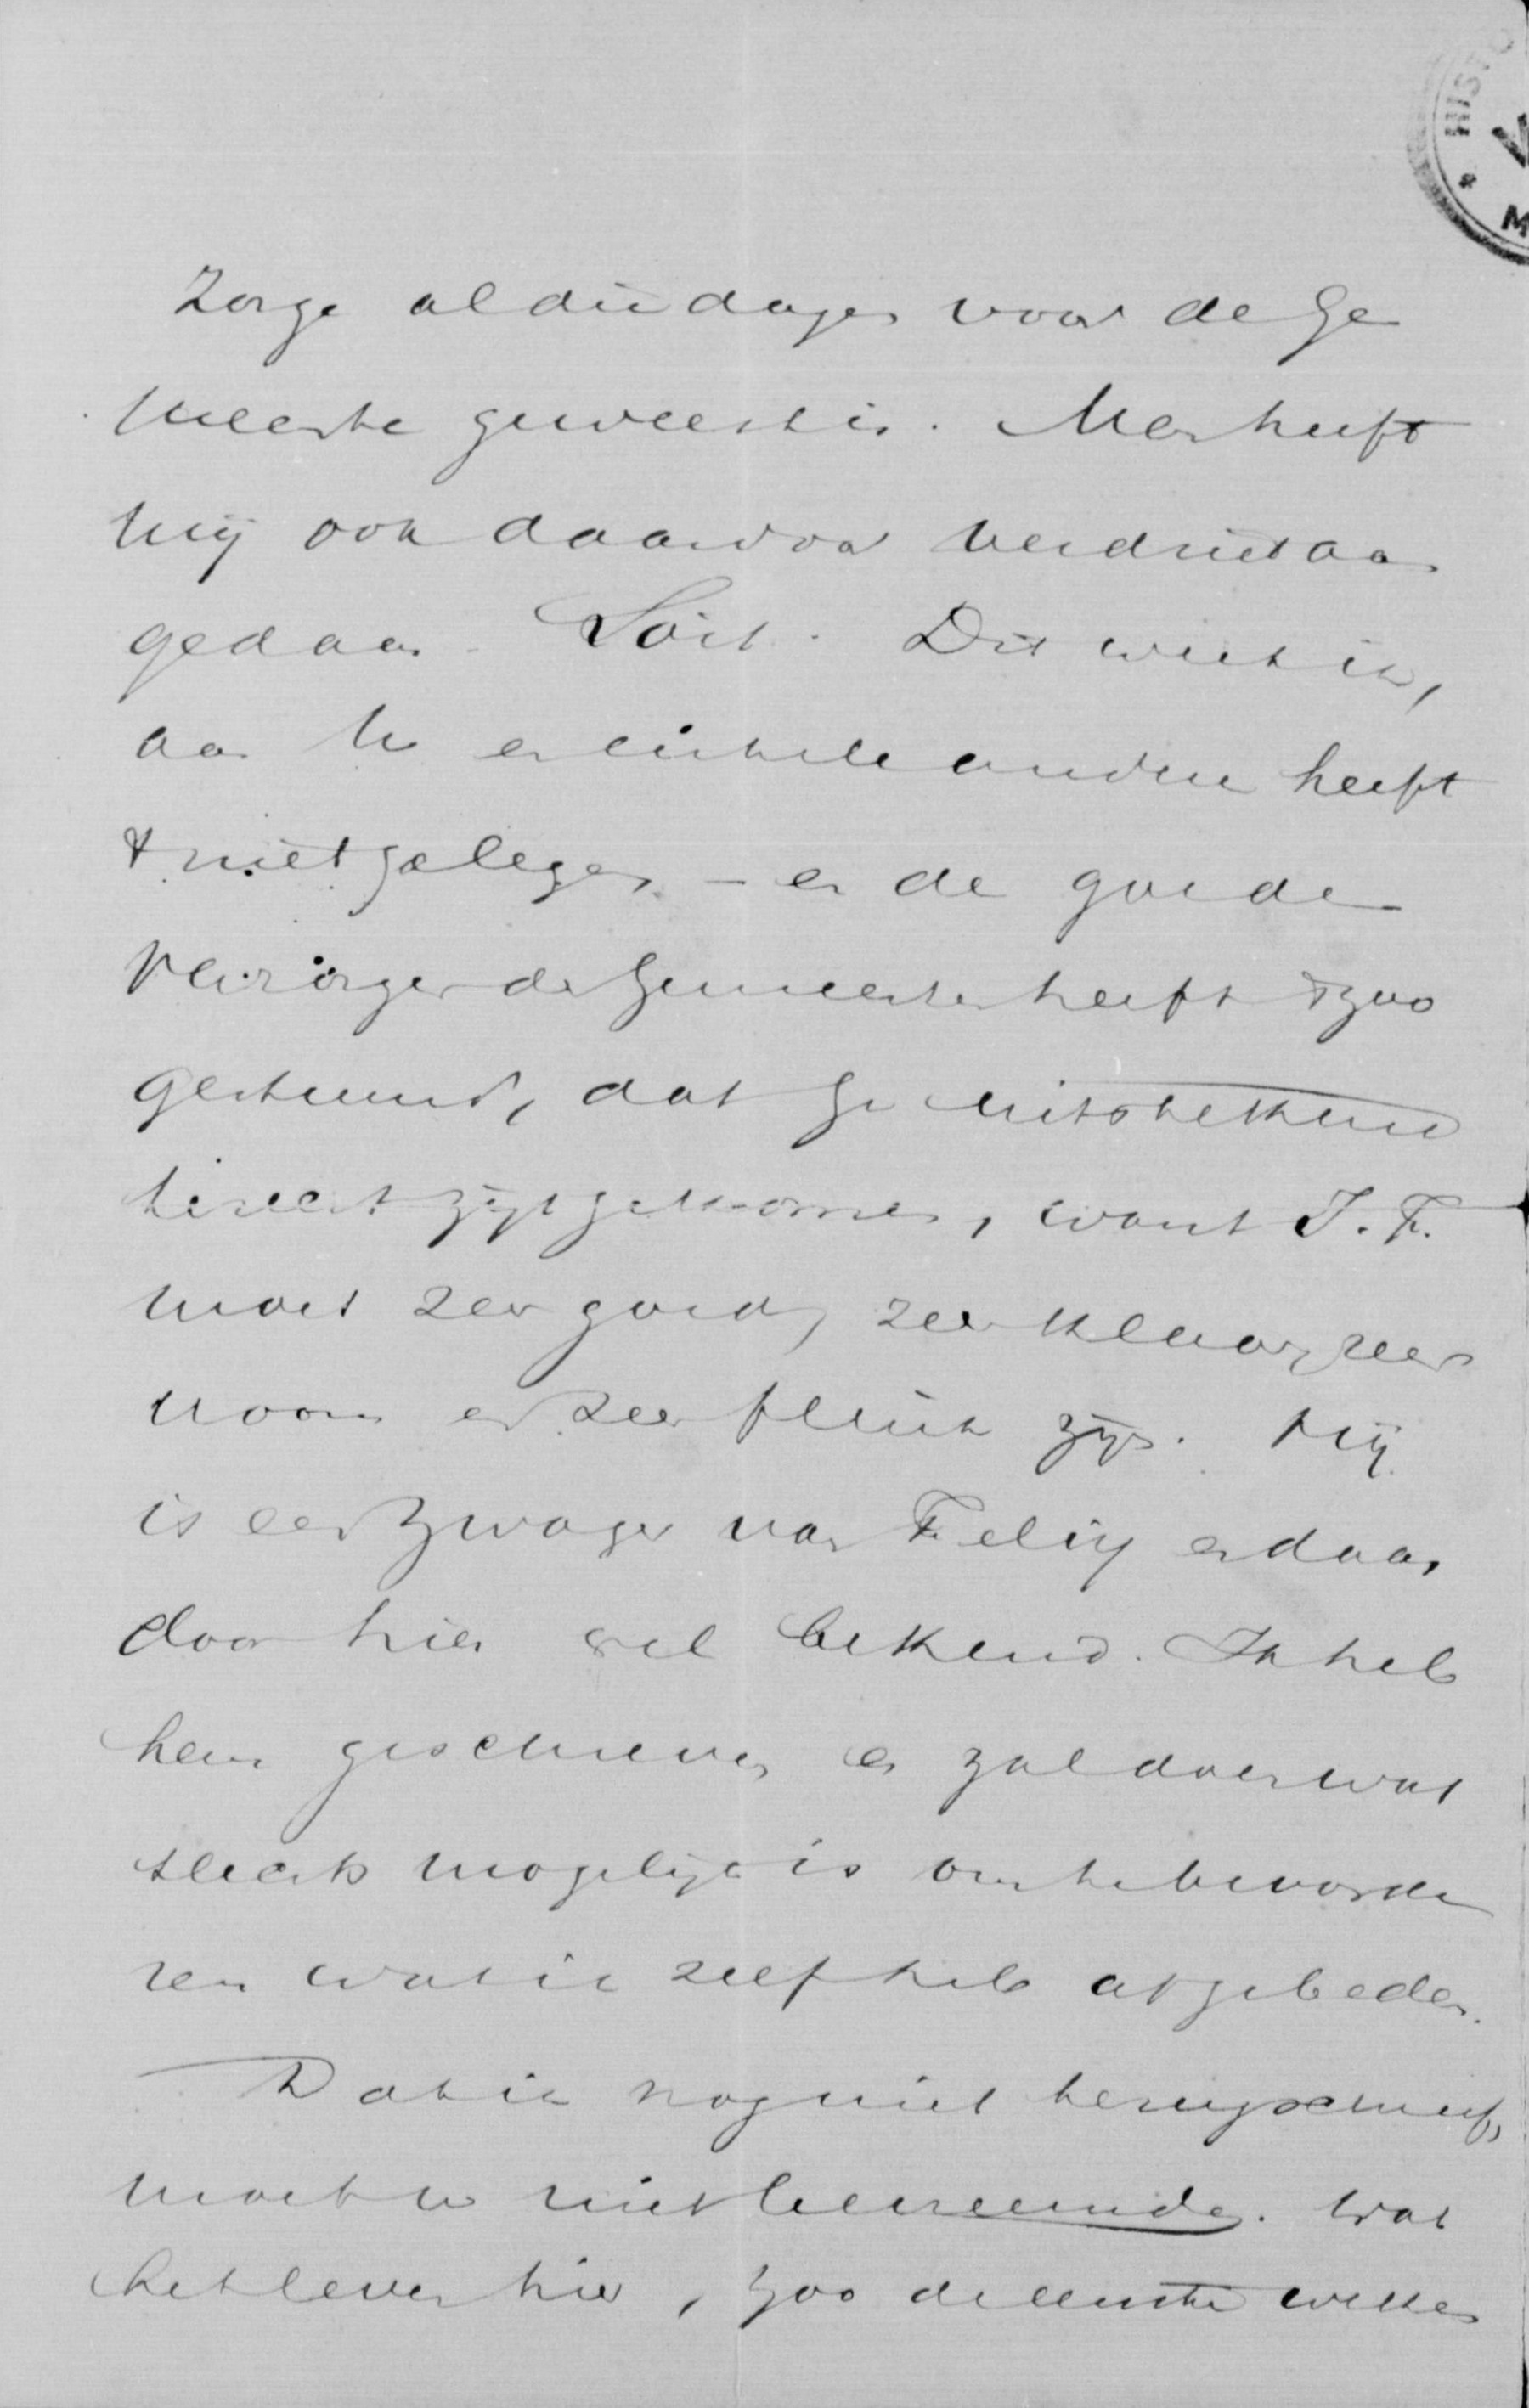 HISTO
V
M
Zorge al die dagen voor de Ge
meente geweest is. Men heeft
mij ook daarvoor verdriet aan
gedaan. Soit. Dit weet ik,
aan U en enkele anderen heeft
't niet gelegen – en de goede
Verzorger der Gemeente heeft 't zoo
gestuurd, dat Ge uitstekend
terecht zijt gekomen, want J. F.
moet zeer goed, zeer klaar, zeer
vroom en zeer flink zijn. Hij
is een zwager van Felix en daar
door hier wel bekend. Ik heb
hem geschreven en zal doen wat
slechts mogelijk is om te bevorde
ren wat ik zelf heb afgebeden.
Dat ik nog niet terugschreef,
moet U niet bevreemden. Wat
het leven hier, zoo de eerste weken